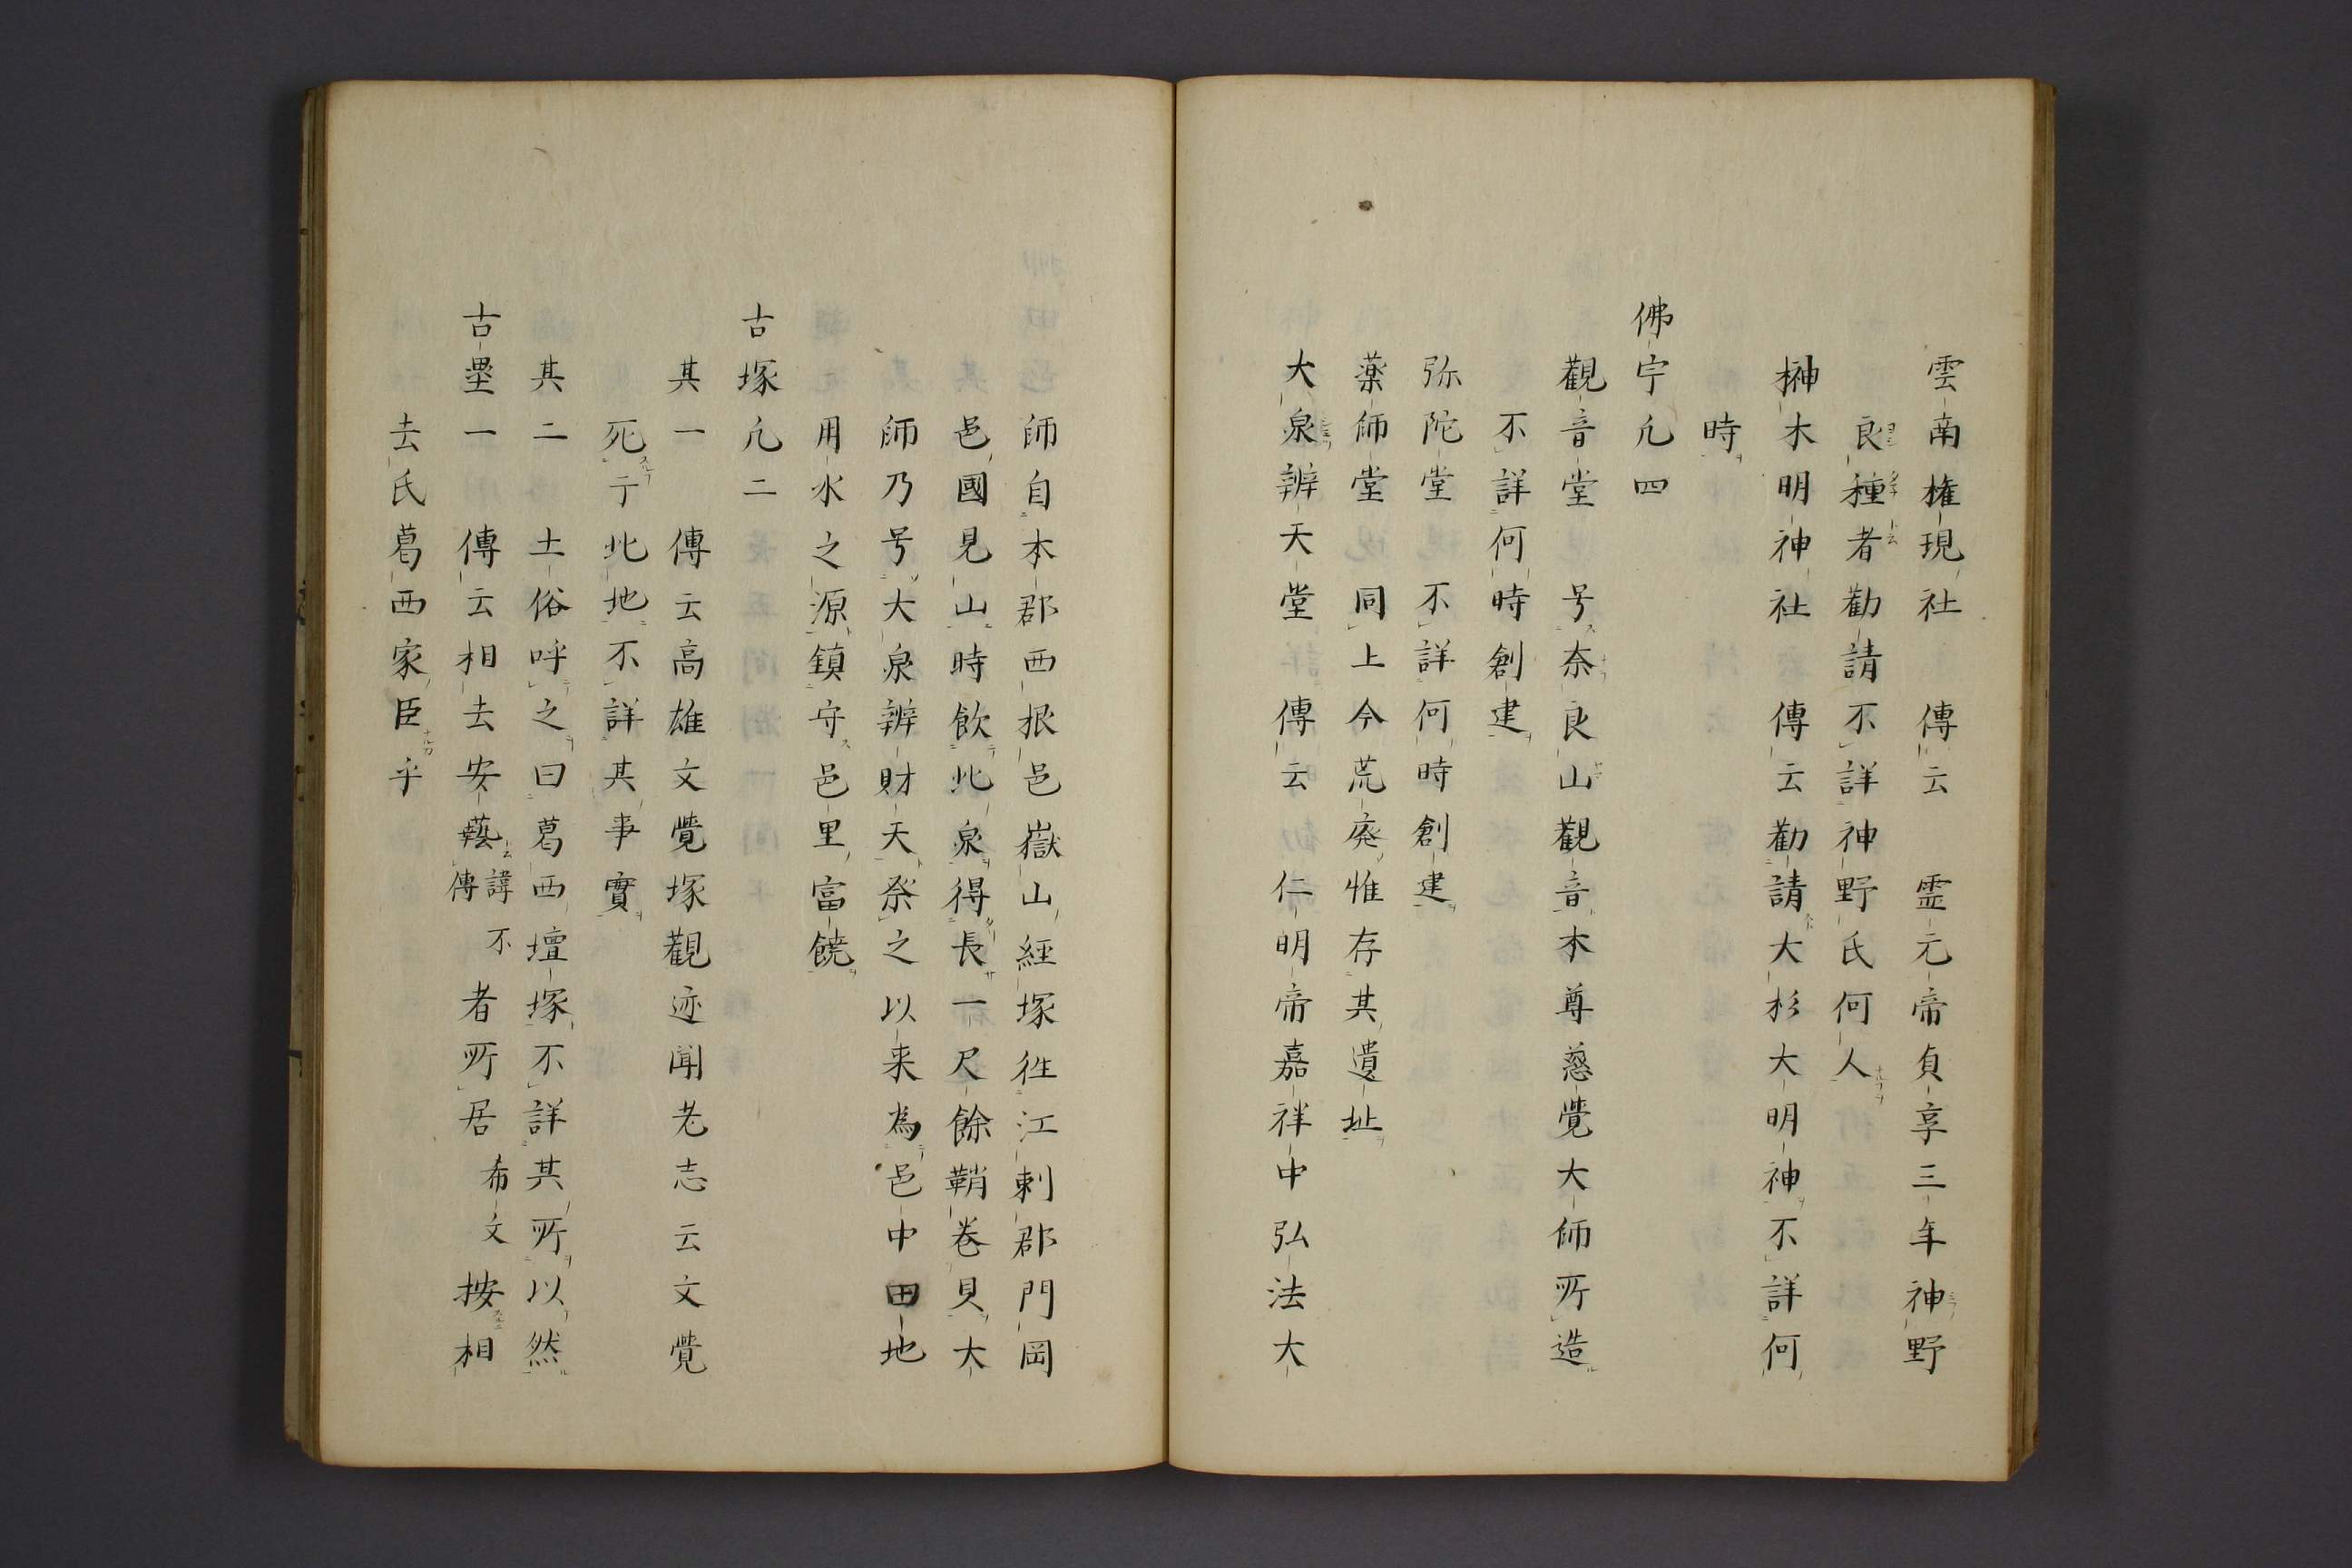 雲南権現社 傳云 霊元帝貞享三年神野
良種者勸請不詳神野氏何人
榊木明神社 傳云勸請大杉大明神不詳何
時
佛宇凢四
觀音堂 号奈良山觀音本尊慈覺大師所造
不詳何時創建
弥陀堂 不詳何時創建
薬師堂 同上今荒廃惟存其遺址
大泉辨天堂 傳云仁明帝嘉祥中弘法大
師自本郡西根邑嶽山經塚徃江刺郡門岡
邑國見山時飲此泉得長一尺餘鞘巻貝大
師乃号大泉辨財天祭之以来為邑中田地
用水之源鎮守邑里富饒
古塚凢二
其一 傳云高雄文覺塚觀迹聞老志云文覺
死亍此地不詳其事實
其二 土俗呼之曰葛西壇塚不詳其所以然
古壘一 傳云相去安藝諱不傳者所居希文按相
去氏葛西家臣乎